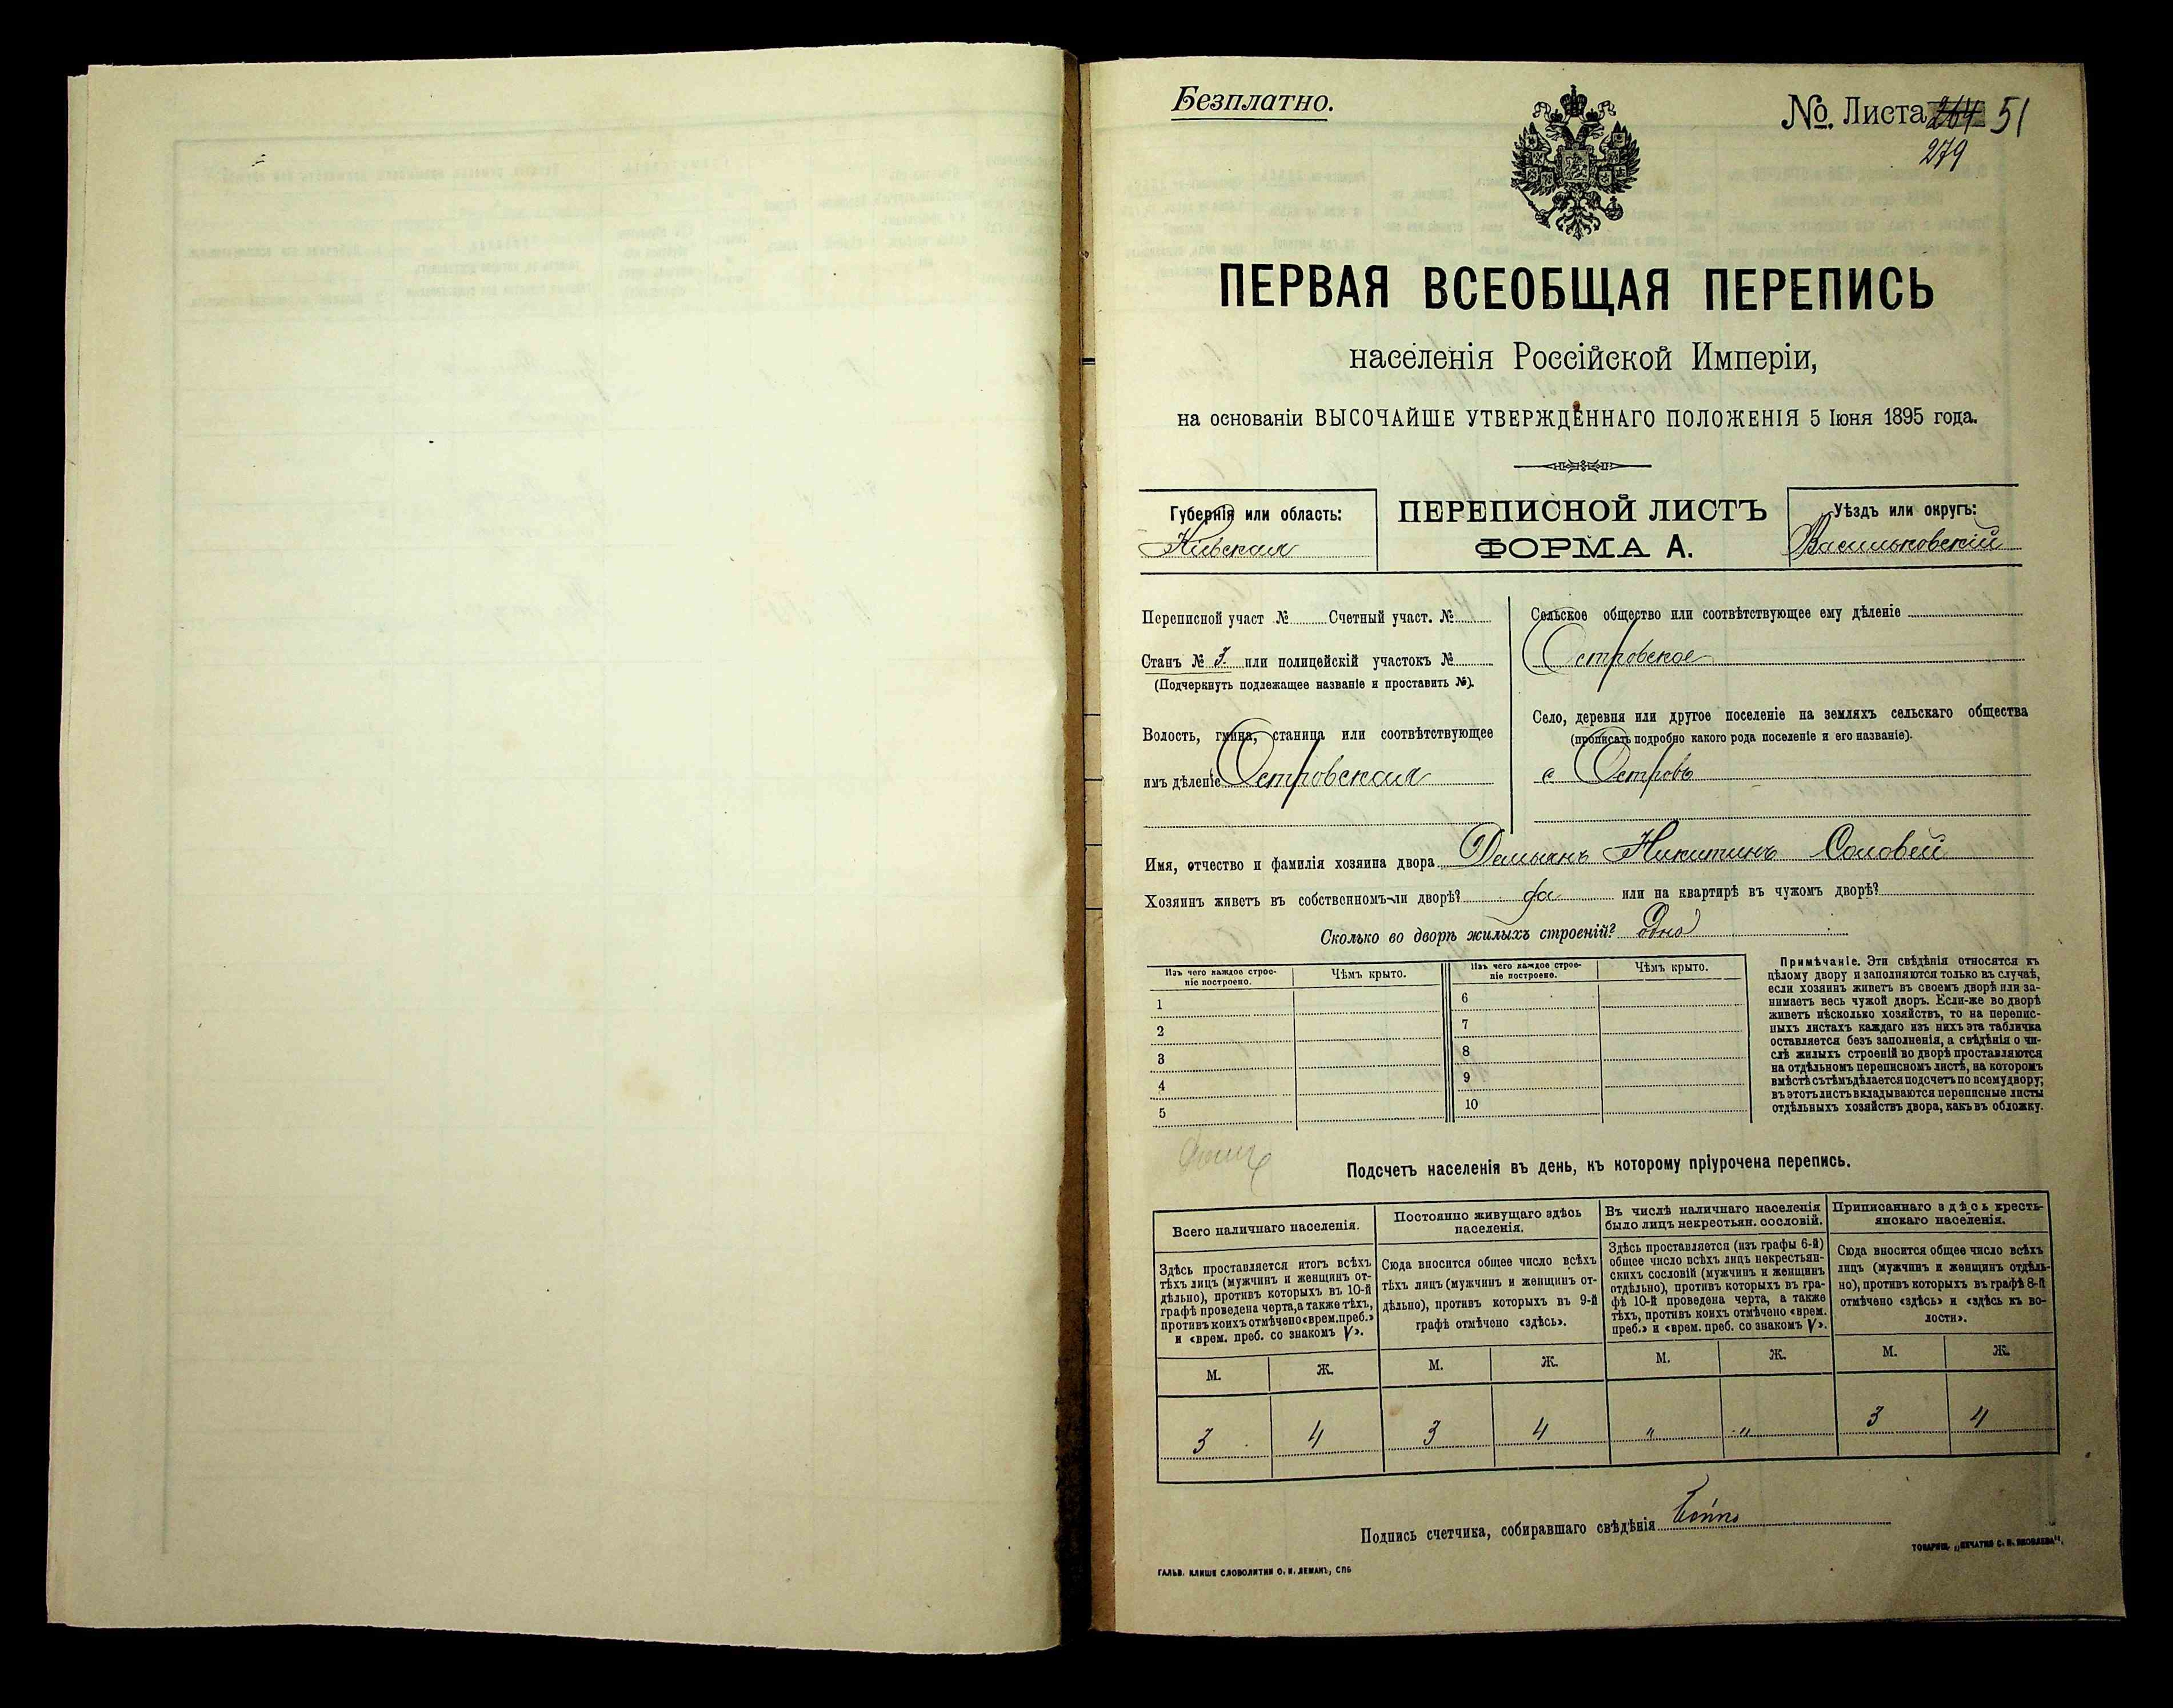 Безплатно.
№ Листа 264 51
279
ПЕРВАЯ ВСЕОБЩАЯ ПЕРЕПИСЬ
населенія Россійской Имперіи,
на основаніи ВЫСОЧАЙШЕ УТВЕРЖДЕННАГО ПОЛОЖЕНІЯ 5 Іюня 1895 года.
Губернія или область:
Кіевская
ПЕРЕПИСНОЙ ЛИСТЪ
ФОРМА А.
Уѣздъ или округъ:
Васильковскій
Переписной участ № Счетный участ. №
Станъ № 3. или полицейскій участокъ №
(Подчеркнуть подлежащее названіе и проставить №).
Волость, гмина, станица или соотвѣтствующее
имъ дѣленіе Островская
Сельское общество или соотвѣтствующее ему дѣленіе
Островское
Село, деревня или другое поселеніе на земляхъ сельскаго общества
(прописать подробно какого рода поселеніе и его названіе).
с Островъ
Имя, отчество и фамилія хозяина двора Демьянъ Никитинъ Соловей
Хозяинъ живетъ въ собственномъ-ли дворѣ? да или на квартирѣ въ чужомъ дворѣ?
Сколько во дворѣ жилыхъ строеній? одно
Изъ чего каждое строе-
ніе построено.
Чѣмъ крыто.
Изъ чего каждое строе-
ніе построено.
Чѣмъ крыто.
1
2
3
4
5
6
7
8
9
10
Примѣчаніе. Эти свѣдѣнія относятся къ
цѣлому двору и заполняются только въ случаѣ,
если хозяинъ живетъ въ своемъ дворѣ или за-
нимаетъ весь чужой дворъ. Если-же во дворѣ
живетъ нѣсколько хозяйствъ, то на перепис-
ныхъ листахъ каждаго изъ нихъ эта табличка
оставляется безъ заполненія, а свѣдѣнія о чи-
слѣ жилыхъ строеній во дворѣ проставляются
на отдѣльномъ переписномъ листѣ, на которомъ
вмѣстѣ съ тѣмъ дѣлается подсчетъ по всему двору;
въ этотъ листъ вкладываются переписные листы
отдѣльныхъ хозяйствъ двора, какъ въ обложку.
Подсчетъ населенія въ день, къ которому пріурочена перепись.
Всего наличнаго населенія.
Здѣсь проставляется итогъ всѣхъ
тѣхъ лицъ (мужчинъ и женщинъ от-
дѣльно), противъ которыхъ въ 10-й
графѣ проведена черта, а также тѣхъ,
противъ коихъ отмѣчено «врем. преб.»
и «врем. преб. со знакомъ V».
Постоянно живущаго здѣсь
населенія.
Сюда вносится общее число всѣхъ
тѣхъ лицъ (мужчинъ и женщинъ от-
дѣльно), противъ которыхъ въ 9-й
графѣ отмѣчено «здѣсь».
Въ числѣ наличнаго населенія
было лицъ некрестьян. сословій.
Здѣсь проставляется (изъ графы 6-й)
общее число всѣхъ лицъ некрестьян-
скихъ сословій (мужчинъ и женщинъ
отдѣльно), противъ которыхъ въ гра-
фѣ 10-й проведена черта, а также
тѣхъ, противъ коихъ отмѣчено «врем.
преб.» и «врем. преб. со знакомъ V».
Приписаннаго здѣсь кресть-
янскаго населенія.
Сюда вносится общее число всѣхъ
лицъ (мужчинъ и женщинъ отдѣль-
но), противъ которыхъ въ графѣ 8-й
отмѣчено «здѣсь» и «здѣсь къ во-
лости».
М. Ж. М. Ж. М. Ж. М. Ж.
3 4 3 4 „ „ 3 4
Подпись счетчика, собиравшаго свѣдѣнія
ГАЛЬВ. КЛИШЕ СЛОВОЛИТНИ О. И. ЛЕМАНЪ, СПБ
ТОВАРИЩ. „ПЕЧАТНЯ С. П. ЯКОВЛЕВА".